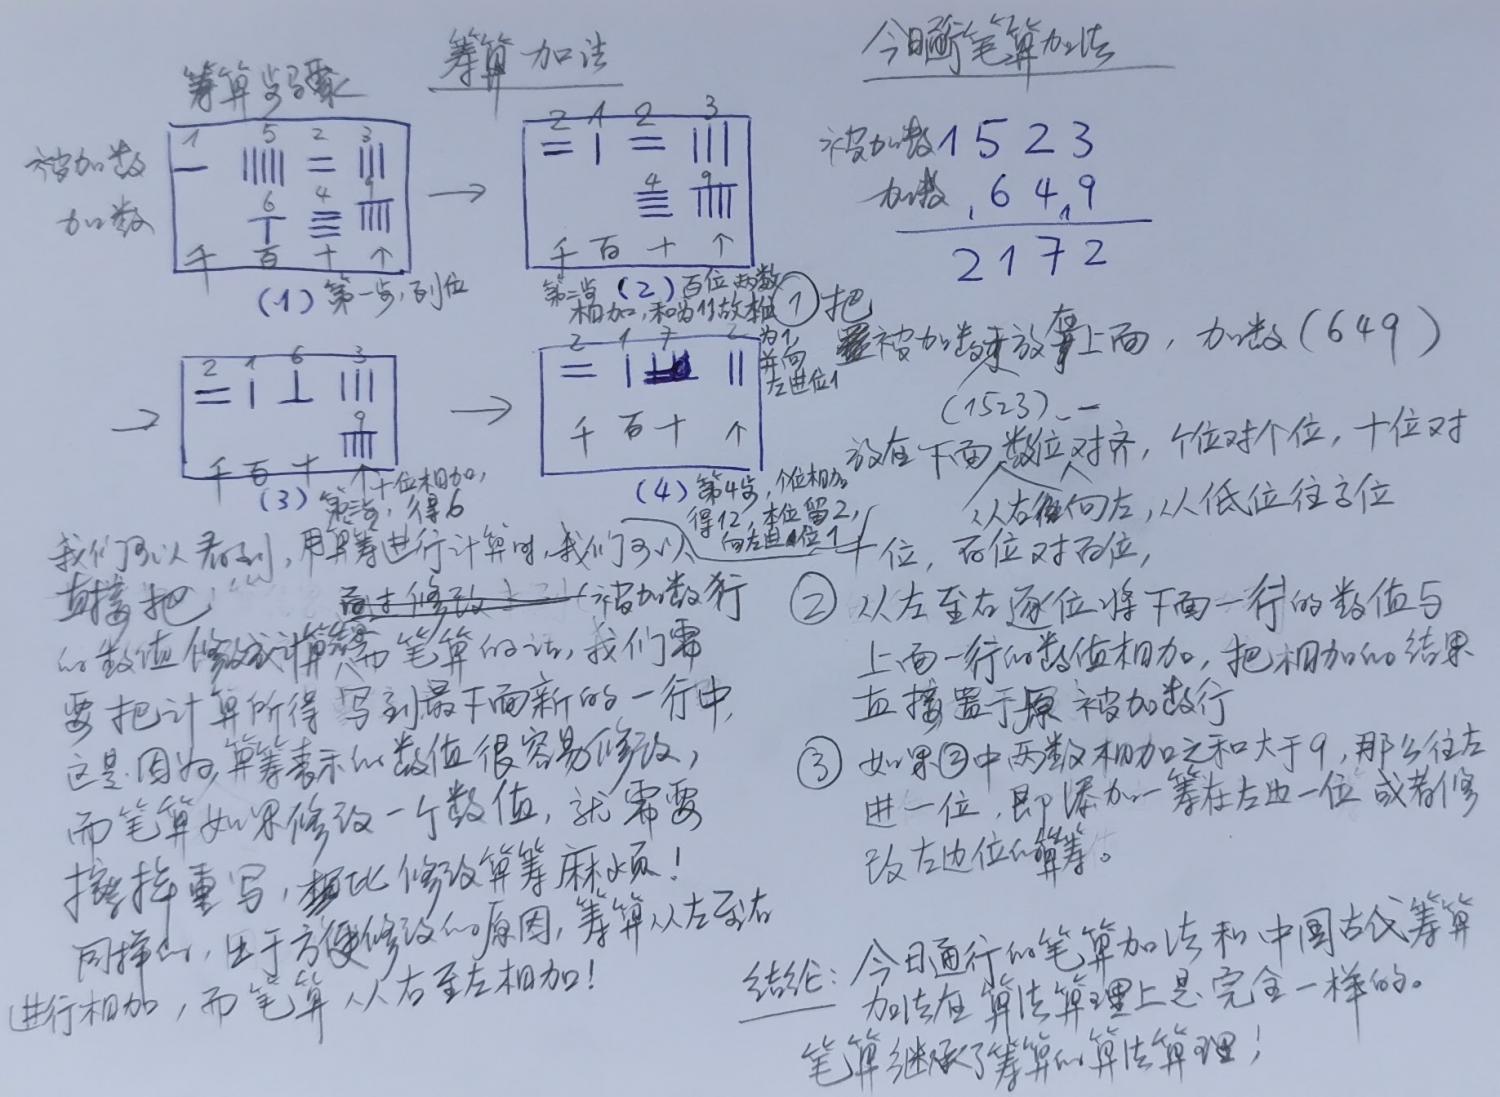 筹算加法
筹算步骤
1 5 2 3
被加数
6 4 9
加数
千 百 十 个
(1) 第一步,列位
2 1 2 3
4 9
千 百 十 个
第二步 (2) 百位两数
相加,和为11故本位
为1,
并向
左进位1
2 1 6 3
9
千 百 十 个
(3) 第三步,十位相加,
得6
2 1 7 2
千 百 十 个
(4) 第4步,个位相加
得12,本位留2,
向左进位1
我们可以看到,用算筹进行计算时,我们可以
直接把 被加数行
的数值修改成计算结果 而笔算的话,我们需
要把计算所得写到最下面新的一行中,
这是因为算筹表示的数值很容易修改,
而笔算如果修改一个数值,就需要
擦掉重写,相比修改算筹麻烦!
同样的,出于方便修改的原因,筹算从左至右
进行相加,而笔算从右至左相加!
今日通行笔算加法
被加数 1 5 2 3
加数 6 4 9
2 1 7 2
① 把
被加数放在上面,加数(649)
(1523)
放在下面 数位对齐,个位对个位,十位对
从右向左,从低位往高位
十位,百位对百位,
② 从左至右逐位将下面一行的数值与
上面一行的数值相加,把相加的结果
直接置于原被加数行
③ 如果②中两数相加之和大于9,那么往左
进一位,即添加一筹在左边一位或者修
改左边位的算筹。
结论:今日通行的笔算加法和中国古代筹算
加法在算法算理上是完全一样的。
笔算继承了筹算的算法算理!